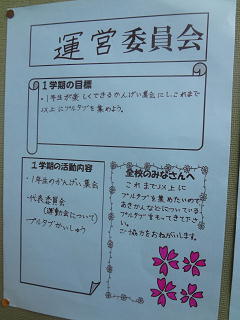 運営委員会
1学期の目標
・1年生が楽しくできるかんげい集会にし、これまで
以上にプルタブを集めよう。
1学期の活動内容
・1年生のかんげい集会
・代表委員会
(運動会について)
プルタブかいしゅう
全校のみなさんへ
これまで以上に
プルタブを集めたいので
あきかんなどについている
プルタブをもってきて下さい。
ご協力をおねがいします。